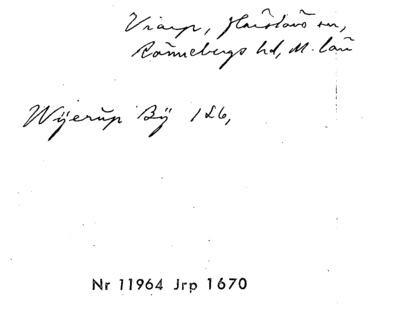 Viarp, Härslövs sn,
Rönnebergs hd, M. län
Wÿerup Bÿ
Nr 11964 Jrp 1670